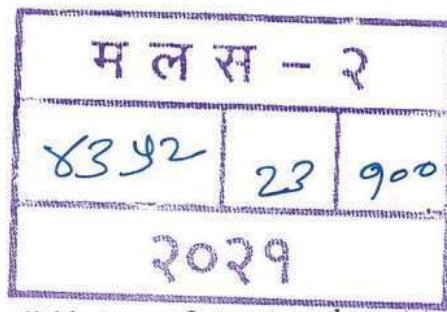 म ल स - २
४३५२ 23 १००
२०२१